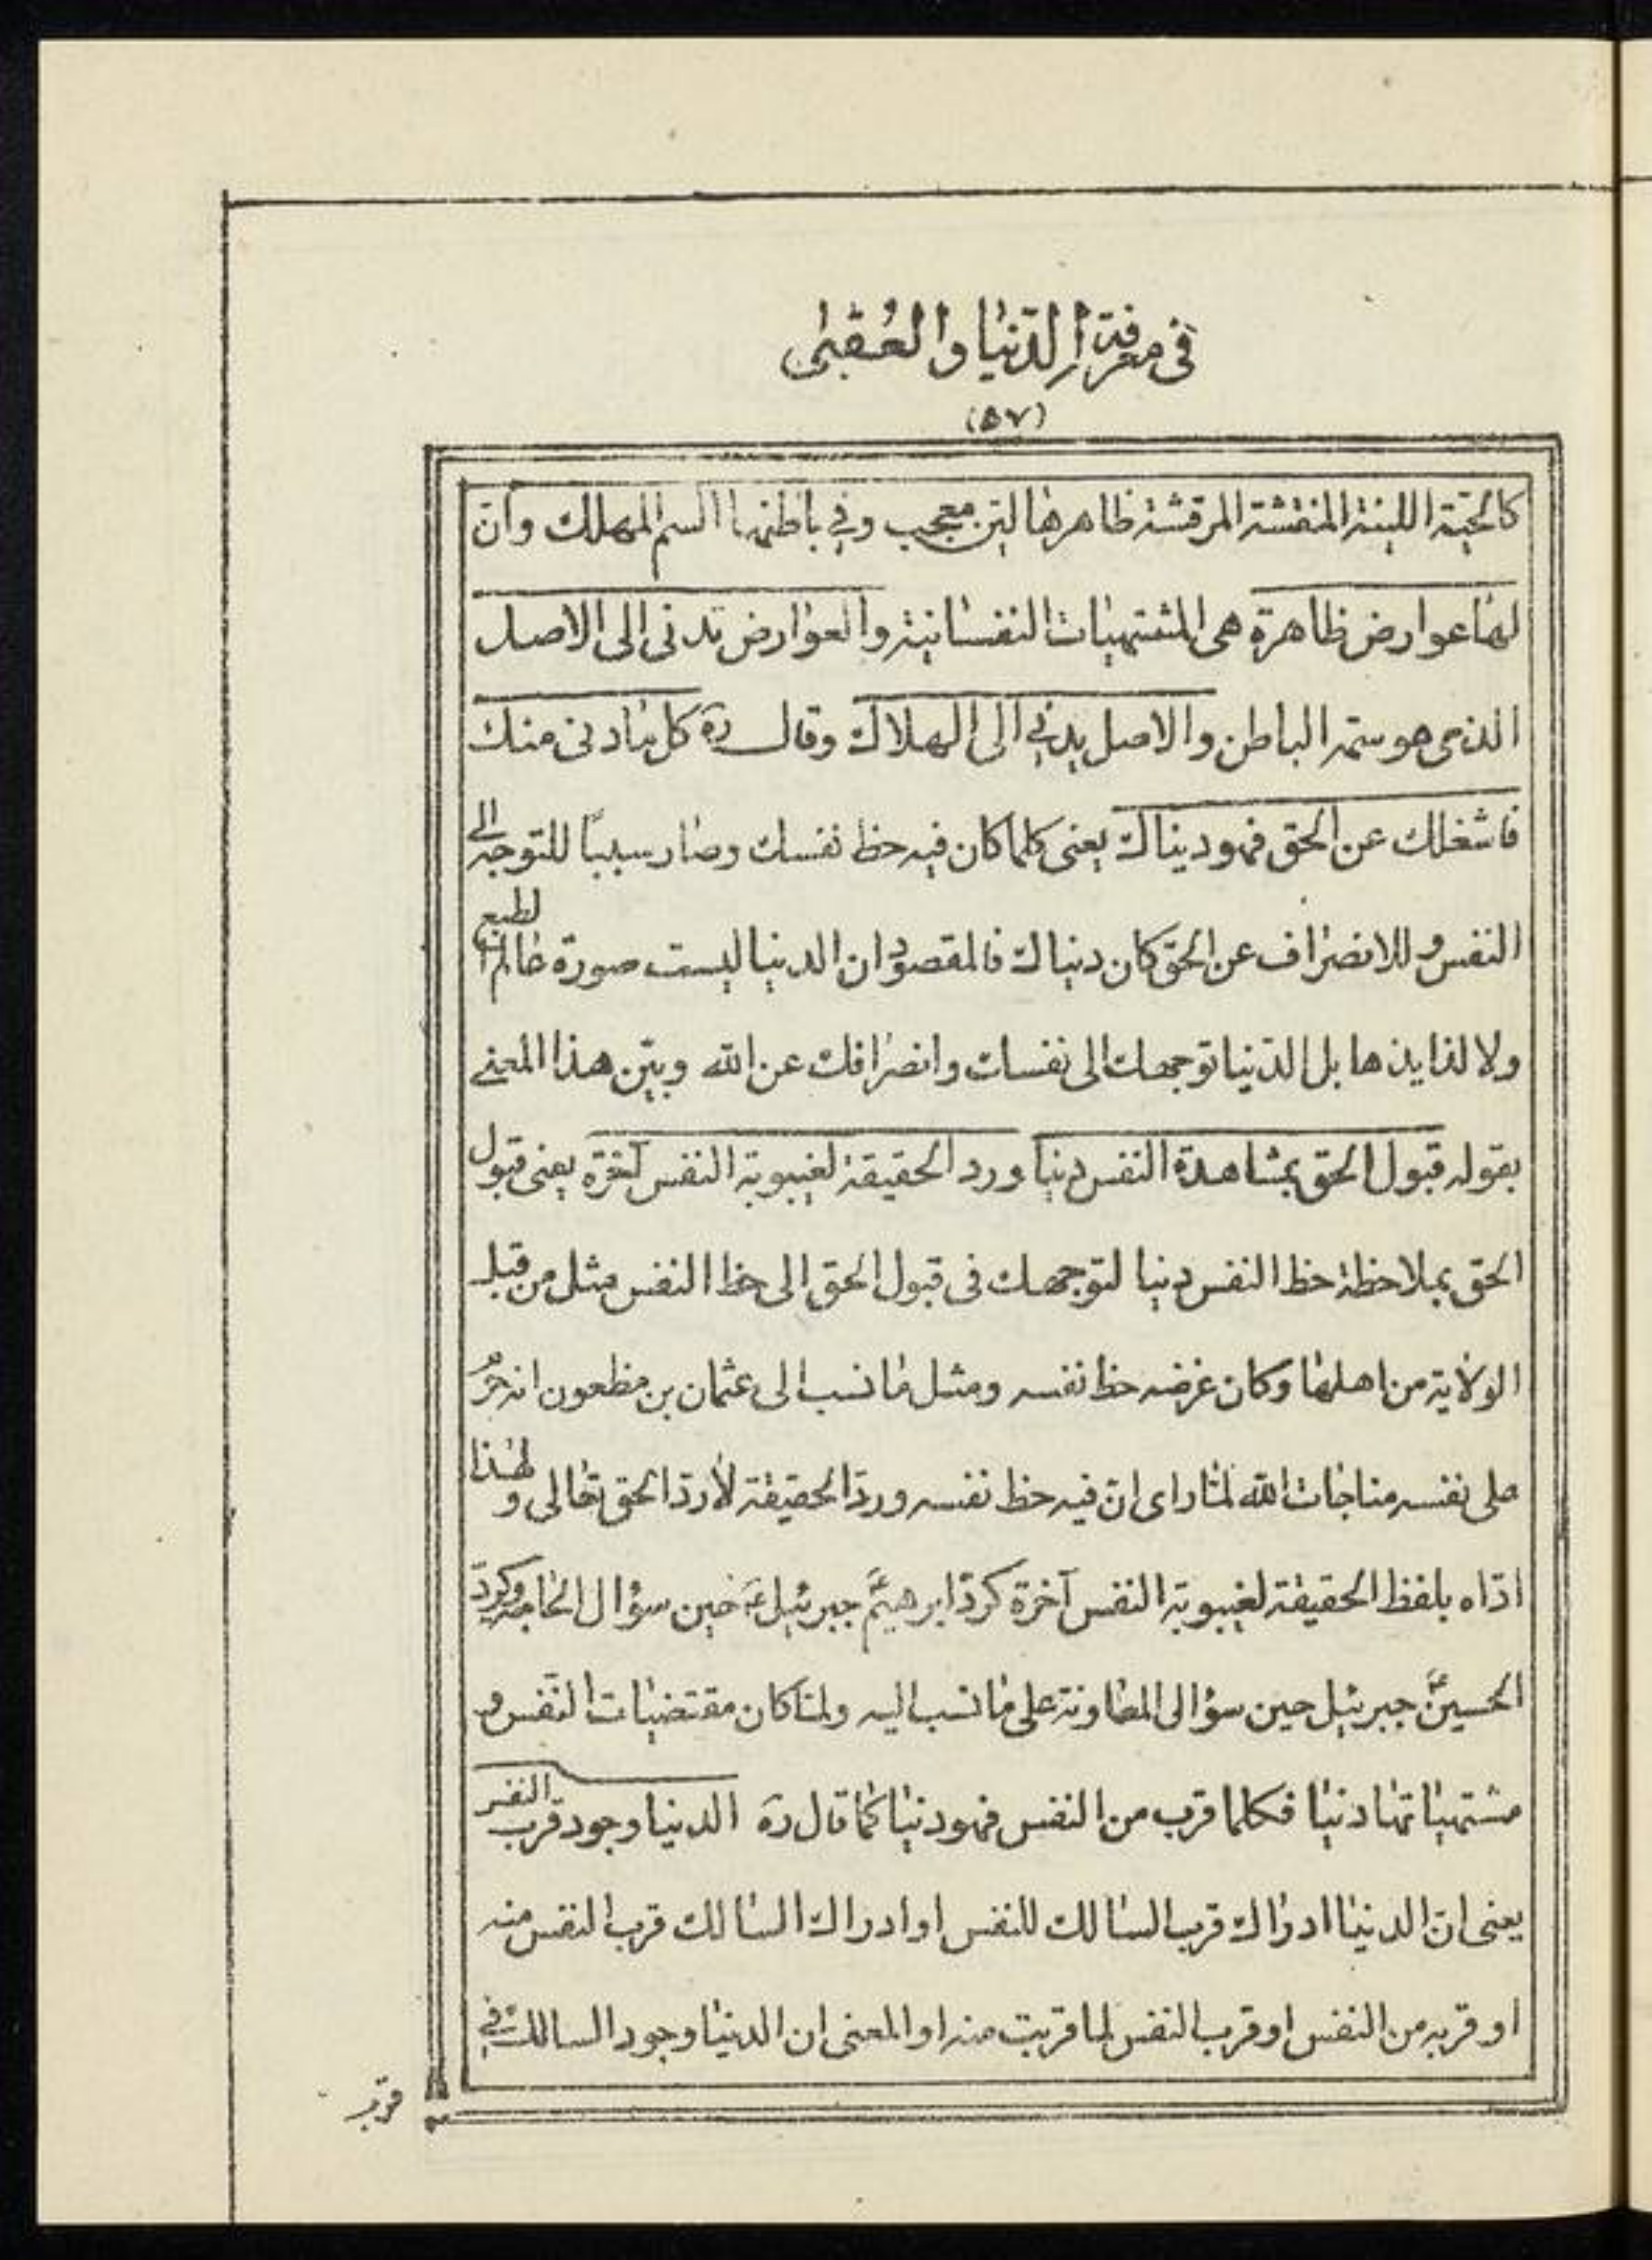 فی معرفة الدّنیا والعُقبٰی
(۵۷)
کالحیّة اللینة المنقشة المرقشة ظاهرها لیّن معجب وفی باطنها السم المهلك وانّ
لهٰا عوارض ظاهرة هی المشتهیٰات النفسٰانیة والعوٰارض تدنی الی الاصل
الذی هو سمّه الباطن والاصل یدنی الی الهلاك وقال ره کل مٰا دنی منك
فاشغلك عن الحق فهو دنیاك یعنی کلما کان فیه حظ نفسك وصٰار سببًا للتوجه الی
النفس وللانصرٰاف عن الحق کان دنیاك فالمقصود ان الدنیا لیست صورة عٰالم الطبع
ولا لذایذها بل الدّنیا توجهك الی نفسك وانصرٰافك عن الله وبیّن هذا المعنی
بقوله قبول الحق بمشاهدة النفس دنیا ورد الحقیقة لغیبوبة النفس آخرة یعنی قبول
الحق بملاحظة حظ النفس دنیا لتوجهك فی قبول الحق الی حظ النفس مثل من قبل
الولٰایة من اهلهٰا وکان غرضه حظ نفسه ومثل مٰا نسب الی عثمان بن مظعون انه حرّم
علی نفسه مناجٰات الله لمّا رای انّ فیه حظ نفسه وردّ الحقیقة لٰا ردّ الحق تعٰالی ولهٰذا
ادّاه بلفظ الحقیقة لغیبوبة النفس آخرة کردّ ابرهیمؑ جبرئیلؑ حین سؤال الحٰاجة وکردّ
الحسینؑ جبرئیل حین سؤالی المعٰاونة علی مٰا نسب الیه ولمّا کان مقتضیٰات النّفس و
مشتهیٰاتهٰا دنیٰا فکلما قرب من النفس فهو دنیٰا کمٰا قال ره الدنیا وجود قرب النفس
یعنی انّ الدنیٰا ادرٰاك قرب السٰالك للنفس او ادراك السٰالك قرب النفس منه
او قربه من النفس او قرب النفس لما قربت منه او المعنی ان الدنیٰا وجود السالك فی
قرب